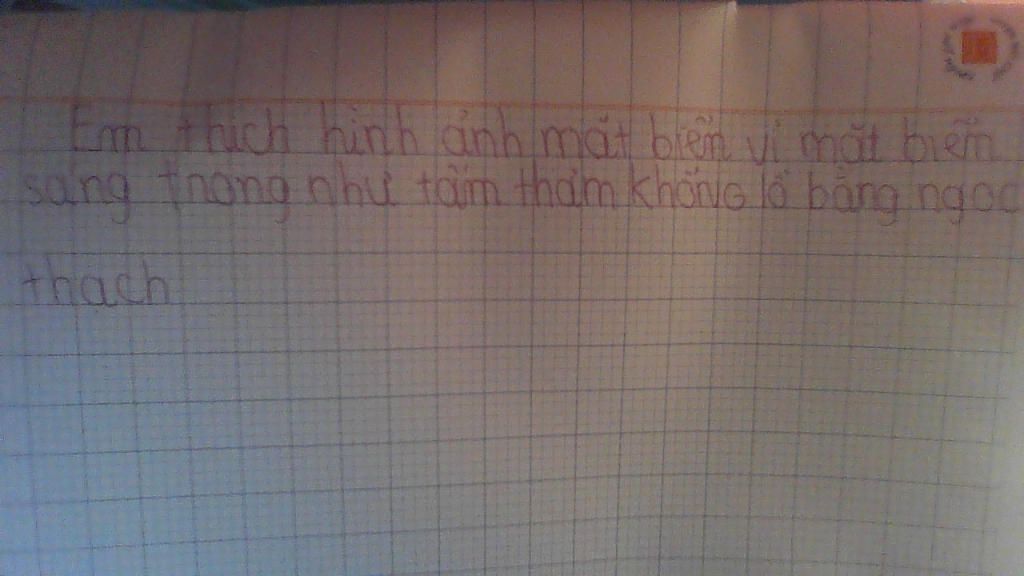 Em thích hình ảnh mặt biển vì mặt biển
sáng trong như tấm thảm khổng lồ bằng ngọc
thạch